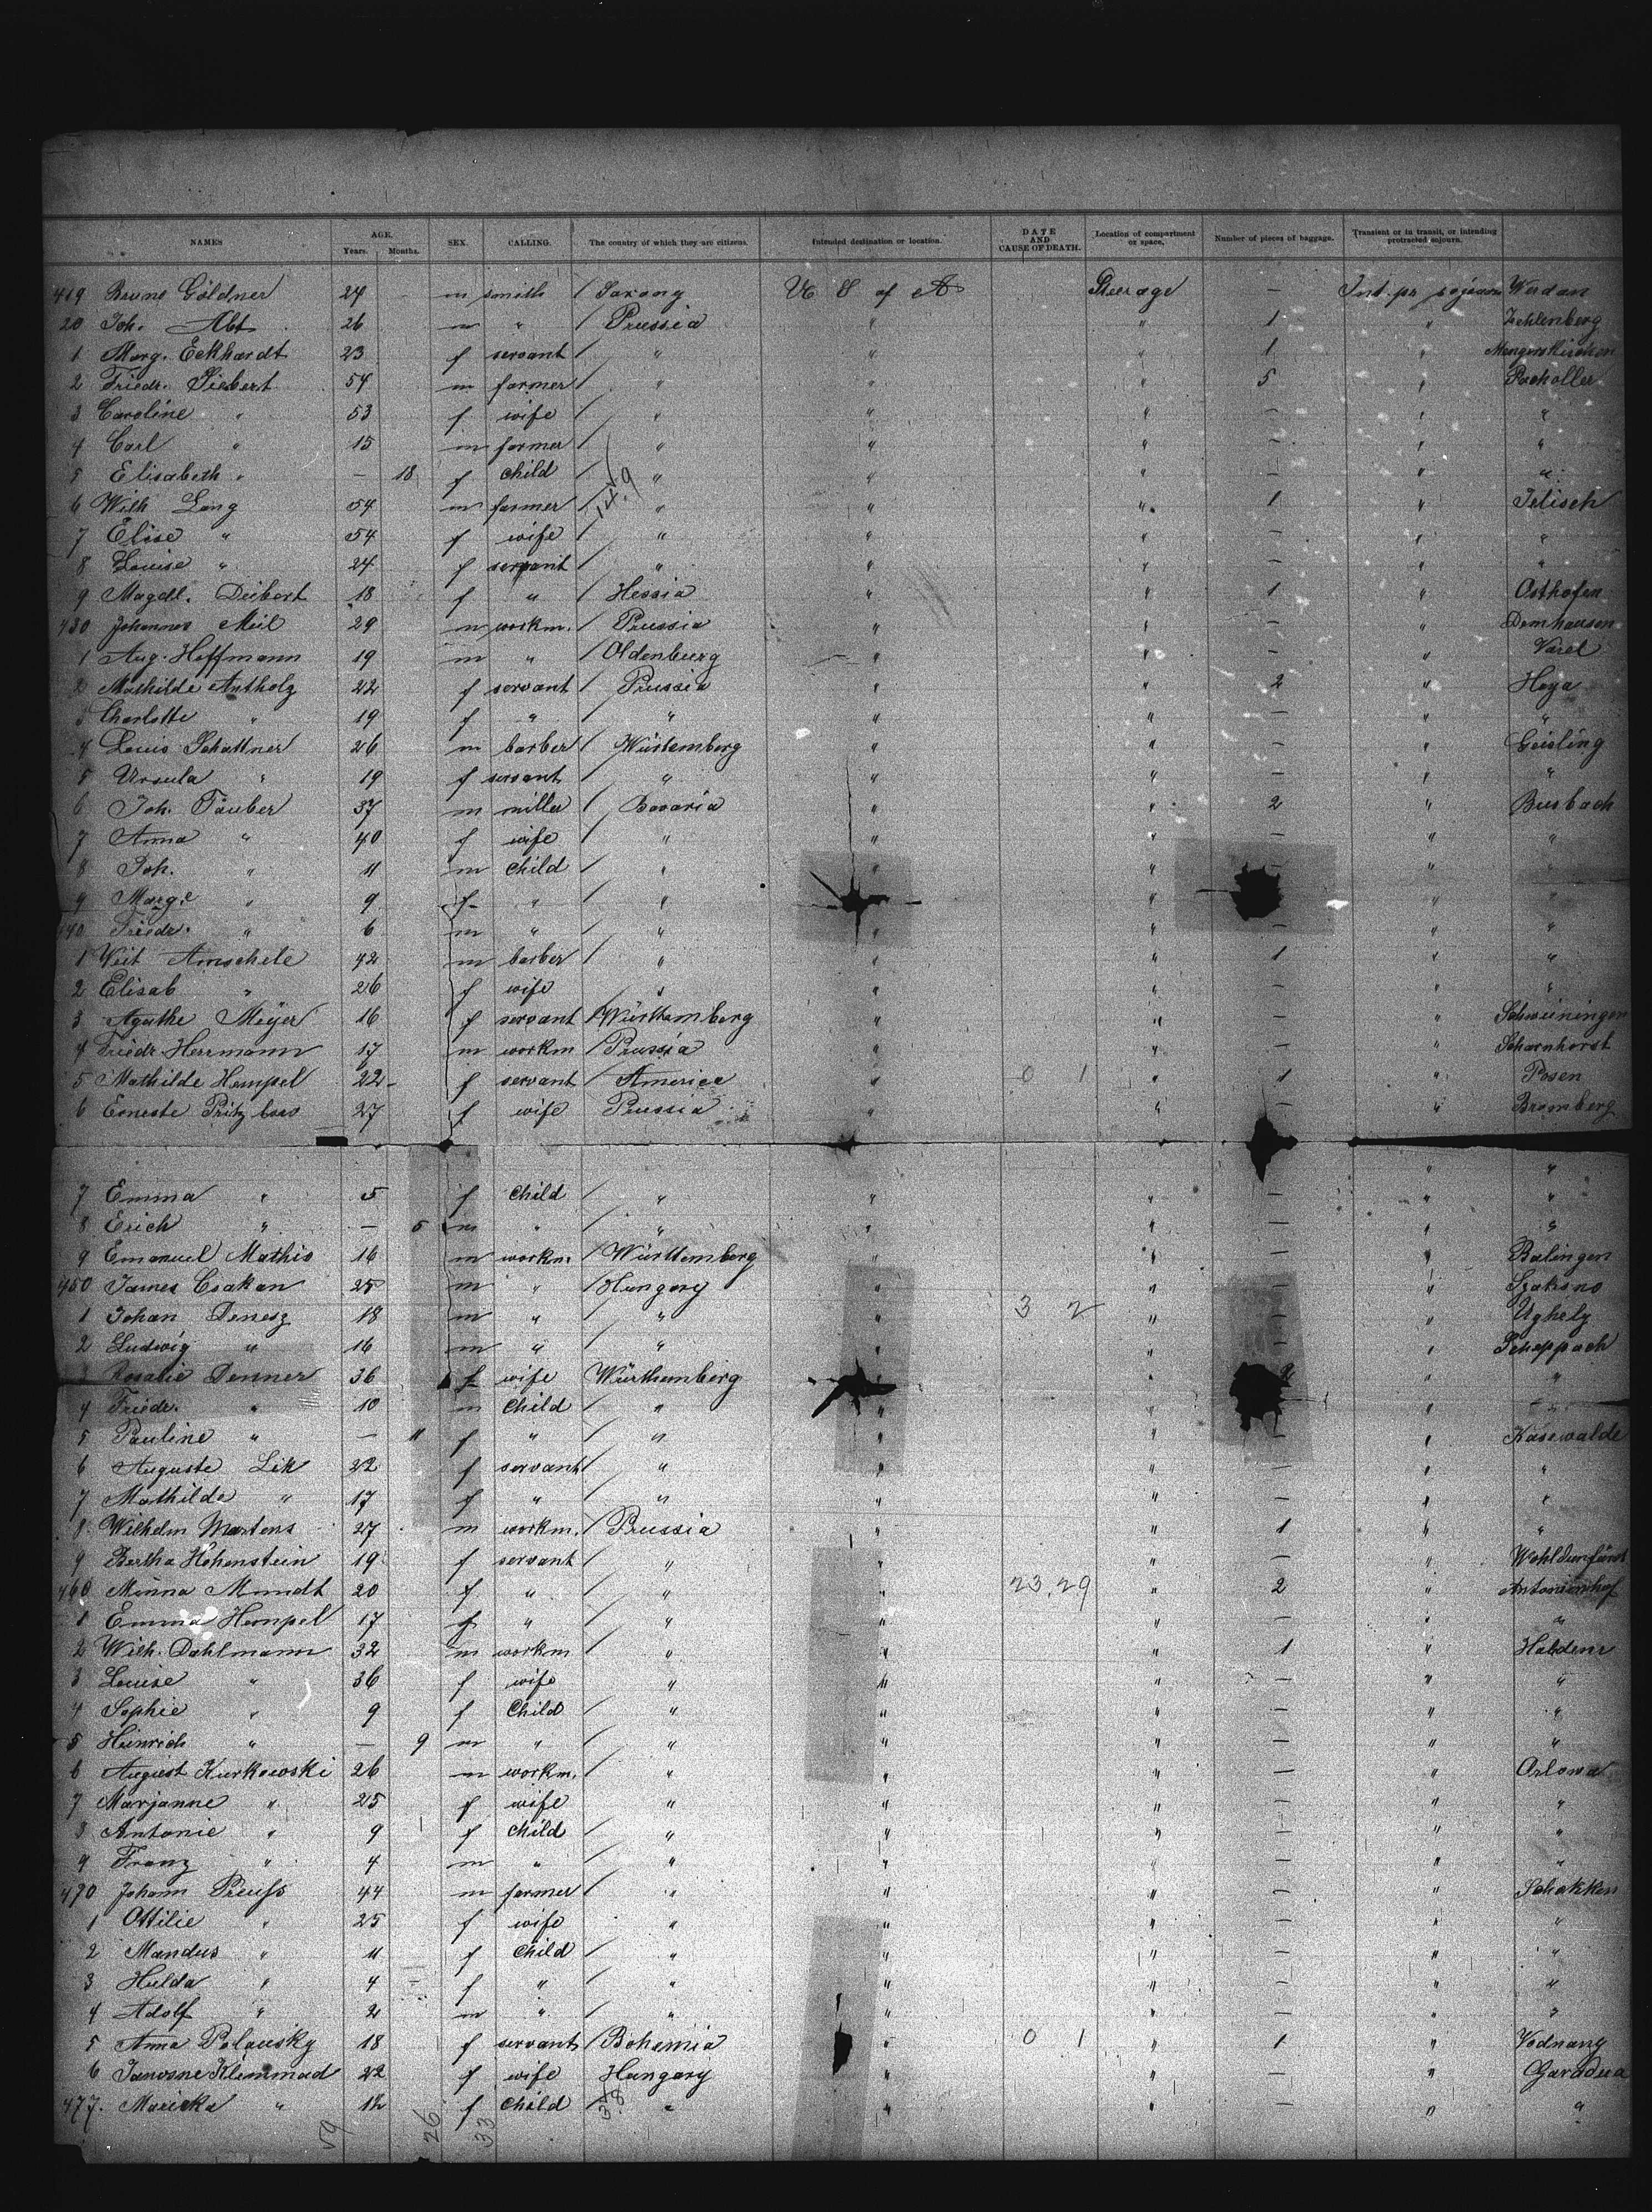 NAMES AGE. Years. Months. SEX. CALLING. The country of which they are citizens. Intended destination or location. DATE AND CAUSE OF DEATH. Location of compartment or space. Number of pieces of baggage. Transient or in transit, or intending protracted sojourn.
419 Bruno Göldner 24 m smith / Saxony U S of A Steerage — Int. pr sojourn Werdau
20 Joh. Abt 26 m " / Prussia " " 1 " Zehlenberg
1 Marg. Eckhardt 23 f servant / " " " 1 "
2 Friedr. Siebert 54 m farmer / " " " 5 "
3 Caroline " 53 f wife / " " " — " "
4 Carl " 15 m farmer / " " " — " "
5 Elisabeth " — 18 f child / " " " — " "
6 Wilh Lang 54 m farmer / " " " 1 " Jelisch
7 Elise " 54 f wife / " " " — " "
8 Louise " 24 f servant / " " " — " "
9 Magdl. Deibert 18 f " / Hessia " " 1 " Osthofen
430 Johannes Meil 29 m workm. / Prussia " " — " Demhausen
1 Aug. Hoffmann 19 m " / Oldenburg " " — " Varel
2 Mathilde Antholz 22 f servant / Prussia " " 2 " Hoya
3 Charlotte " 19 f " / " " " — " "
4 Louis Schattner 26 m barber / Würtemberg " " — " Geisling
5 Ursula " 19 f servant / " " " — " "
6 Joh. Täuber 37 m miller / Bavaria " " 2 " Busbach
7 Anna " 40 f wife / " " " — " "
8 Joh. " 11 m child / " " " — " "
9 Marg. " 9 f " / " " " "
440 Friedr. " 6 m " / " " " — " "
1 Veit Amschele 42 m barber / " " " 1 " "
2 Elisab " 26 f wife " " " — " "
3 Agathe Meyer 16 f servant / Württemberg " " — " Schwieningen
4 Friedr. Herrmann 17 m workm / Prussia " " — " Scharnhorst
5 Mathilde Hempel 22 f servant / America " 0 1 " 1 " Posen
6 Erneste Pritzbors 27 f wife Prussia " " — " Bromberg
" "
7 Emma " 5 f child / " " " — " "
8 Erich " — 5 m " / " " " — " "
9 Emanuel Mathis 16 m workm. / Württemberg " " — " Balingen
450 James Csakan 25 m " / Hungary " " — " Szaksno
1 Johan Denesz 18 m " / " " 3 2 " — " Ughely
2 Ludwig " 16 m " / " " " — " Scheppach
3 Rosalie Denner 36 f wife Würthemberg " " 2 " "
4 Friedr. " 10 m child / " " " " "
5 Pauline " — 11 f " / " " " — " Käsewalde
6 Auguste Lik 22 f servant / " " " — " "
7 Mathilde " 17 f " / " " " — " "
8 Wilhelm Martens 27 m workm. / Prussia " " 1 " "
9 Bertha Hohenstein 19 f servant / " " " — "
460 Minna Mundt 20 f " / " " 23.29 " 2 " Antonienhof
1 Emma Hempel 17 f " / " " " — " "
2 Wilh. Dahlmann 32 m workm / " " " 1 " Haldem
3 Louise " 36 f wife " " " — " "
4 Sophie " 9 f Child / " " " — " "
5 Heinrich " — 9 m " / " " " — " "
6 August Kurkowski 26 m workm. / " " " — " Orlowa
7 Marjanne " 25 f wife " " " — " "
8 Antonie " 9 f child / " " " — " "
9 Franz " 4 m " / " " " — " "
470 Johann Preuss 44 m farmer / " " " — " Schakken
1 Ottilie " 25 f wife " " " — " "
2 Mandus " 11 f child / " " " — " "
3 Hulda " 4 f " / " " " — " "
4 Adolf " 2 m " / " " " — " "
5 Anna Polausky 18 f servant / Bohemia " 0 1 " 1 " Vodnany
6 Janosne Klimmad 22 f wife Hungary " " — " Garadna
477. Maricka " 12 f child / " " " — " "
59 26 33 38